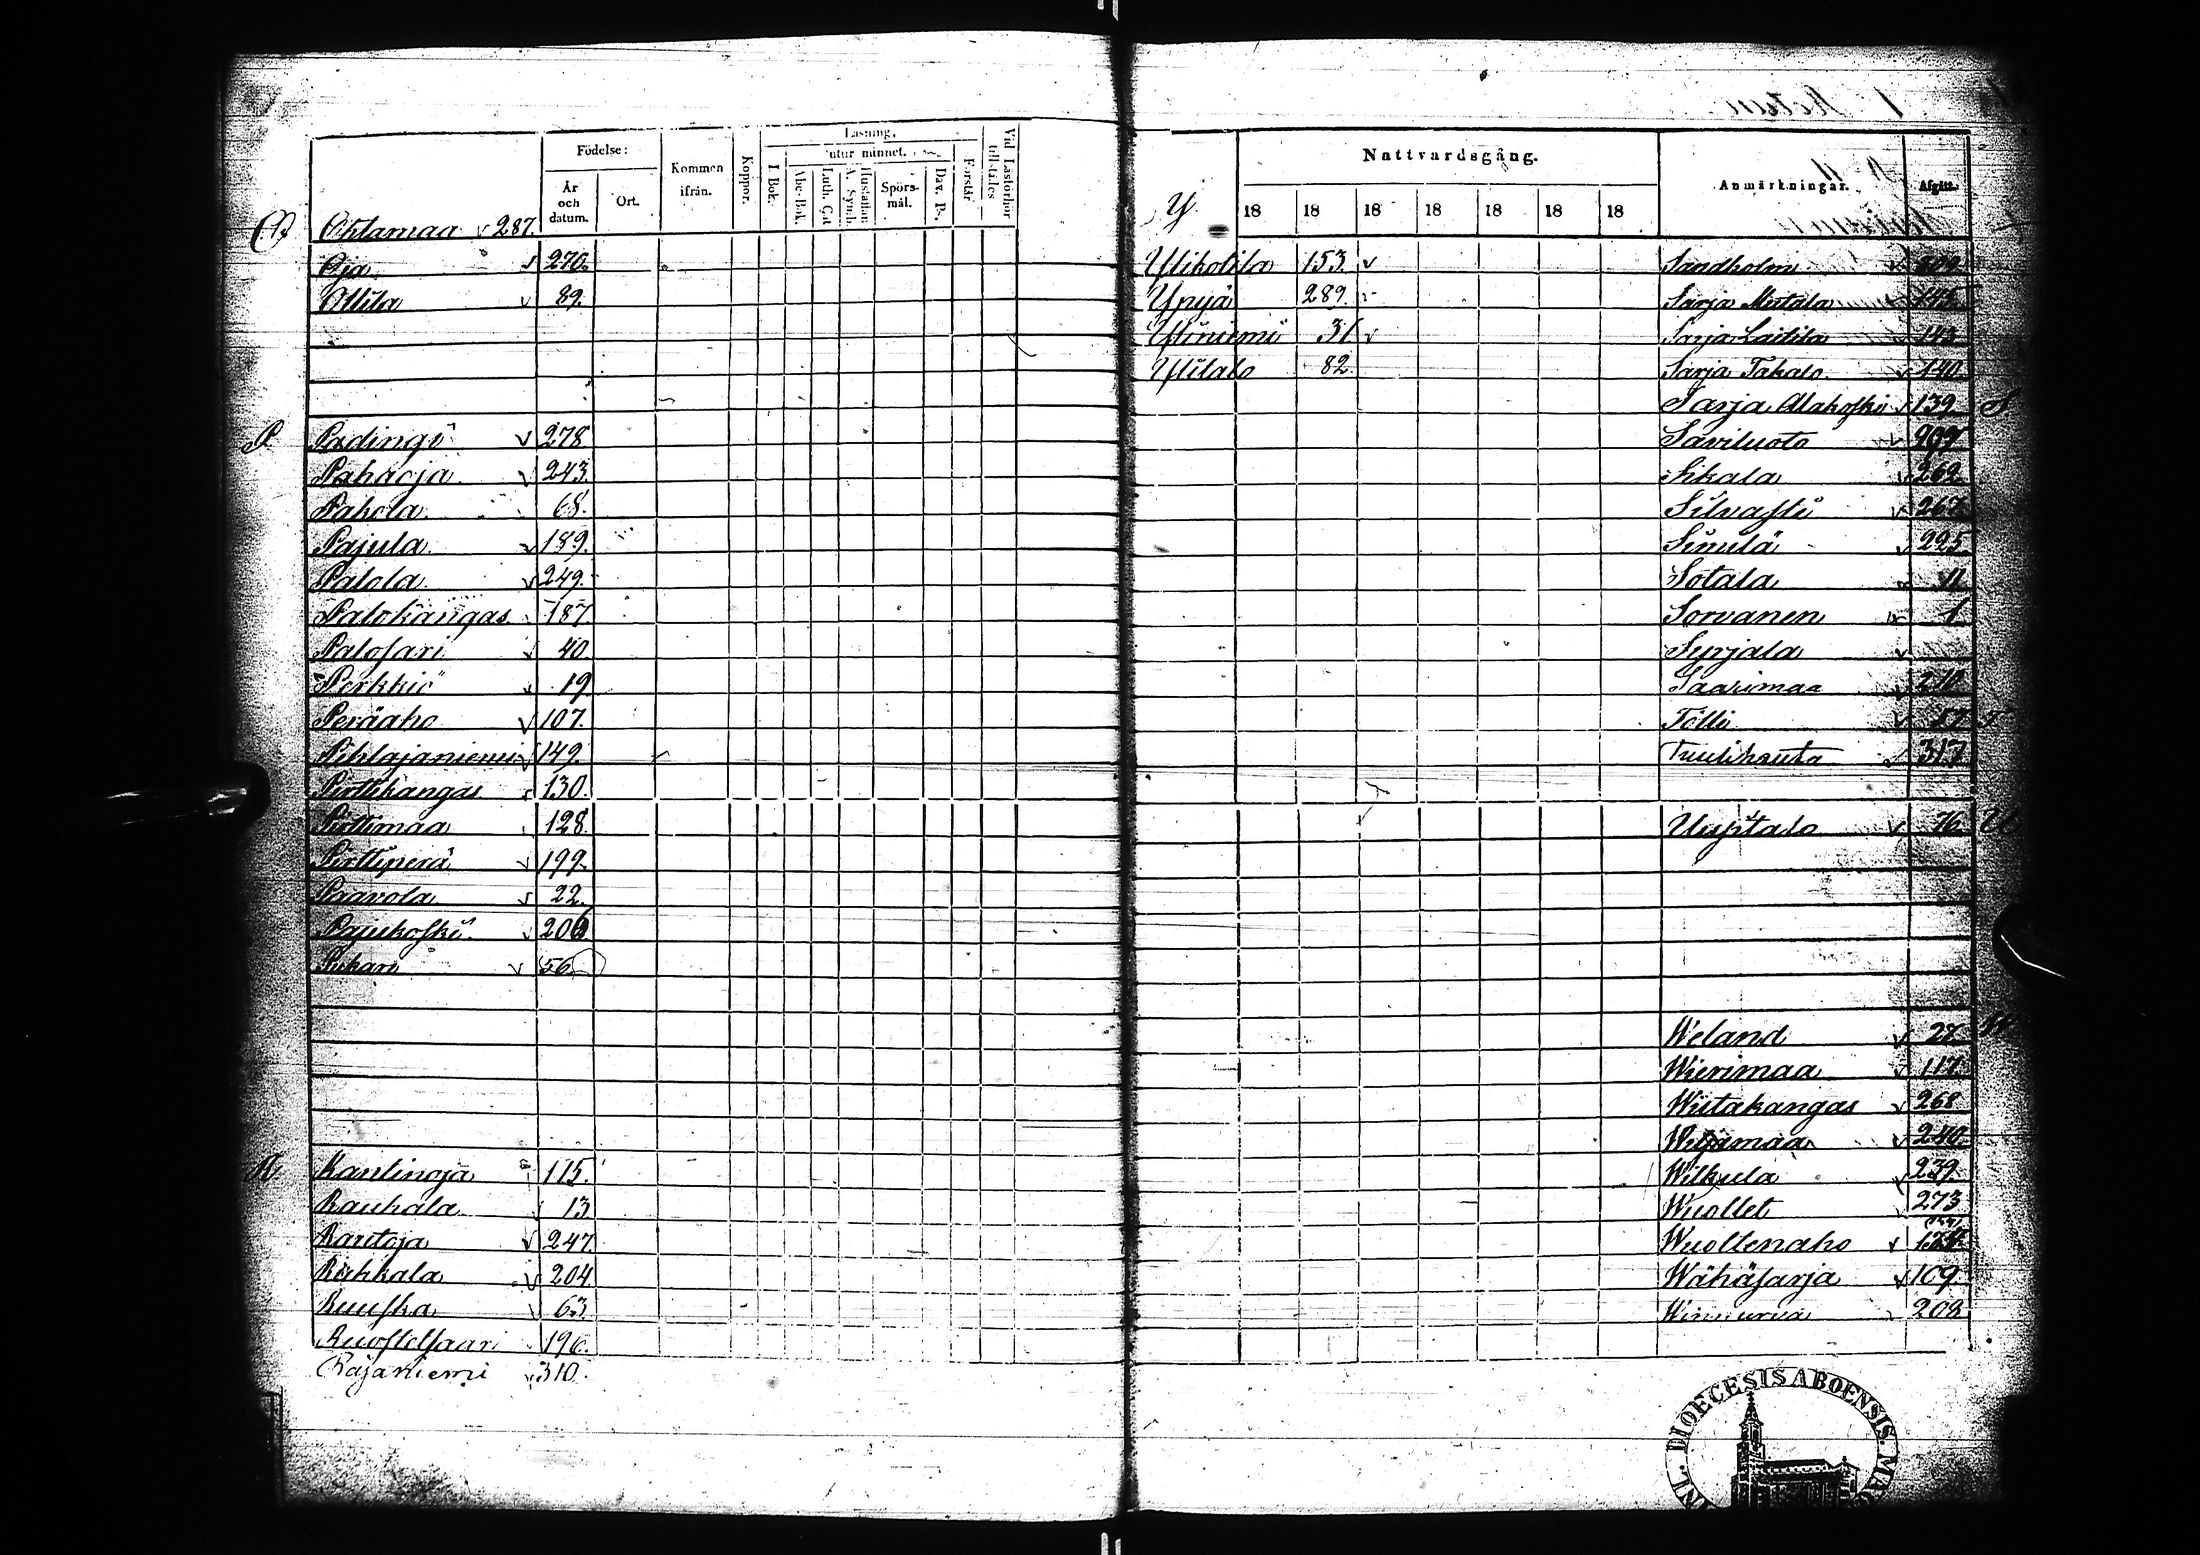 Födelse:
År och datum.
Ort.
Kommen ifrån.
Koppor.
Läsning.
I. Bok.
utur minnet.
Abc-Bok.
Luth. Cat.
A. Symb.
Hustaflan
Spörs-mål.
Dav. Ps.
Förstår
Vid Läsförhör tillstädes
O Ohtamaa v 287.
Oja v 270.
Ollila v 89.
P Perdingi v 278
Pahaoja v 243.
Pahola 68.
Pajula v 189.
Palola v 249.
Palokangas 187.
Palosari v 40
Perkkiö v 19
Peräaho v 107.
Pihlajaniemi v 149.
Pirttikangas v 130.
Pirttimaa 128.
Pirttiperä v 199.
Paavola v 22.
Pajukoski v 206
Pukari v 56.
R Rantinoja 115.
Rauhala v 13
Rautoja v 247.
Ruhkala v 204.
Ruuska v 63.
Ruostelsaari 196.
Rajaniemi v 310.
Y.
Nattvardsgång.
18 18 18 18 18 18 18
Anmärkningar.
Afgått.
Ylikotila 153. v
Ypyä 289.
Yliniemi 31 v
Ylitalo 82
Sandholm v 309
Sarja Mustala 145
Sarja Laitila v 143
Sarja Takalo v 140.
Sarja Alakoski v 139 S
Saviluoto v
Sikala v 262.
Silvasti v 267.
Similä v 225.
Sotala 11
Sorvanen 1.
Syrjälä v
Saarimaa v 210
Tölli v 57 T
Tuulihauta v 317
Uusitalo v 76. U
Weland v 27. W
Wierimaa v 117
Wiitakangas v 268
Wiljamaa v 240.
Wilkula v 239.
Wuollet v 273
Wuoltenaho v
Wähäsarja v 109.
Winnurva 208
DIOECESIS ABOENSIS.